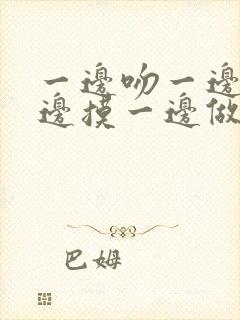 一邊吻一邊
邊摸一邊做
巴姆